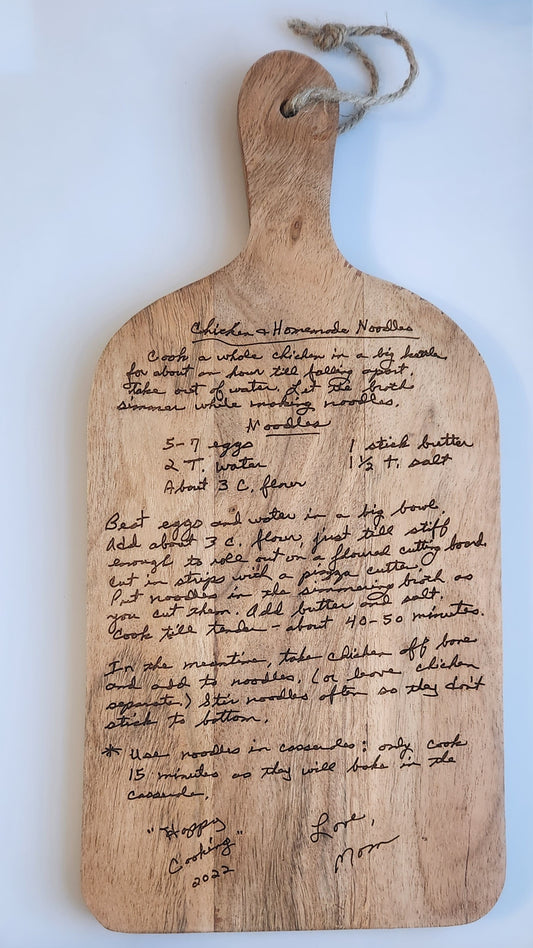 Chicken & Homemade Noodles
Cook a whole chicken in a big kettle
for about an hour till falling apart.
Take out of water. Let the broth
simmer while making noodles.
Noodles
5-7 eggs 1 stick butter
2 T. water 1 1/2 t. salt
About 3 C. flour
Beat eggs and water in a big bowl.
Add about 3 c. flour, just till stiff
enough to roll out on a floured cutting board.
Cut in strips with a pizza cutter.
Put noodles in the simmering broth as
you cut them. Add butter and salt.
Cook till tender - about 40-50 minutes.
In the meantime, take chicken off bone
and add to noodles. (or leave chicken
separate.) Stir noodles often so they don't
stick to bottom.
* Use noodles in casseroles: only cook
15 minutes as they will bake in the
casserole.
"Happy
Cooking"
2022
Love,
Mom